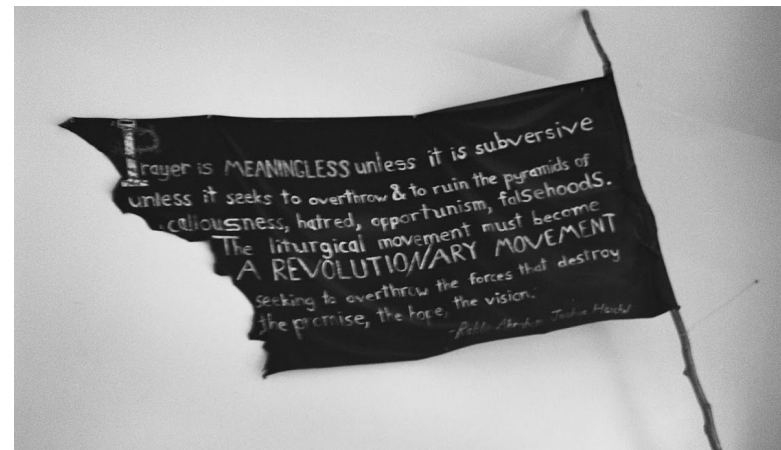 Prayer is MEANINGLESS unless it is subversive
unless it seeks to overthrow & to ruin the pyramids of
callousness, hatred, opportunism, falsehoodS.
The liturgical movement must become
A REVOLUTIONARY MOVEMENT
seeking to overthrow the forces that destroy
the promise, the hope, the vision.
-Rabbi Abraham Joshua Heschel